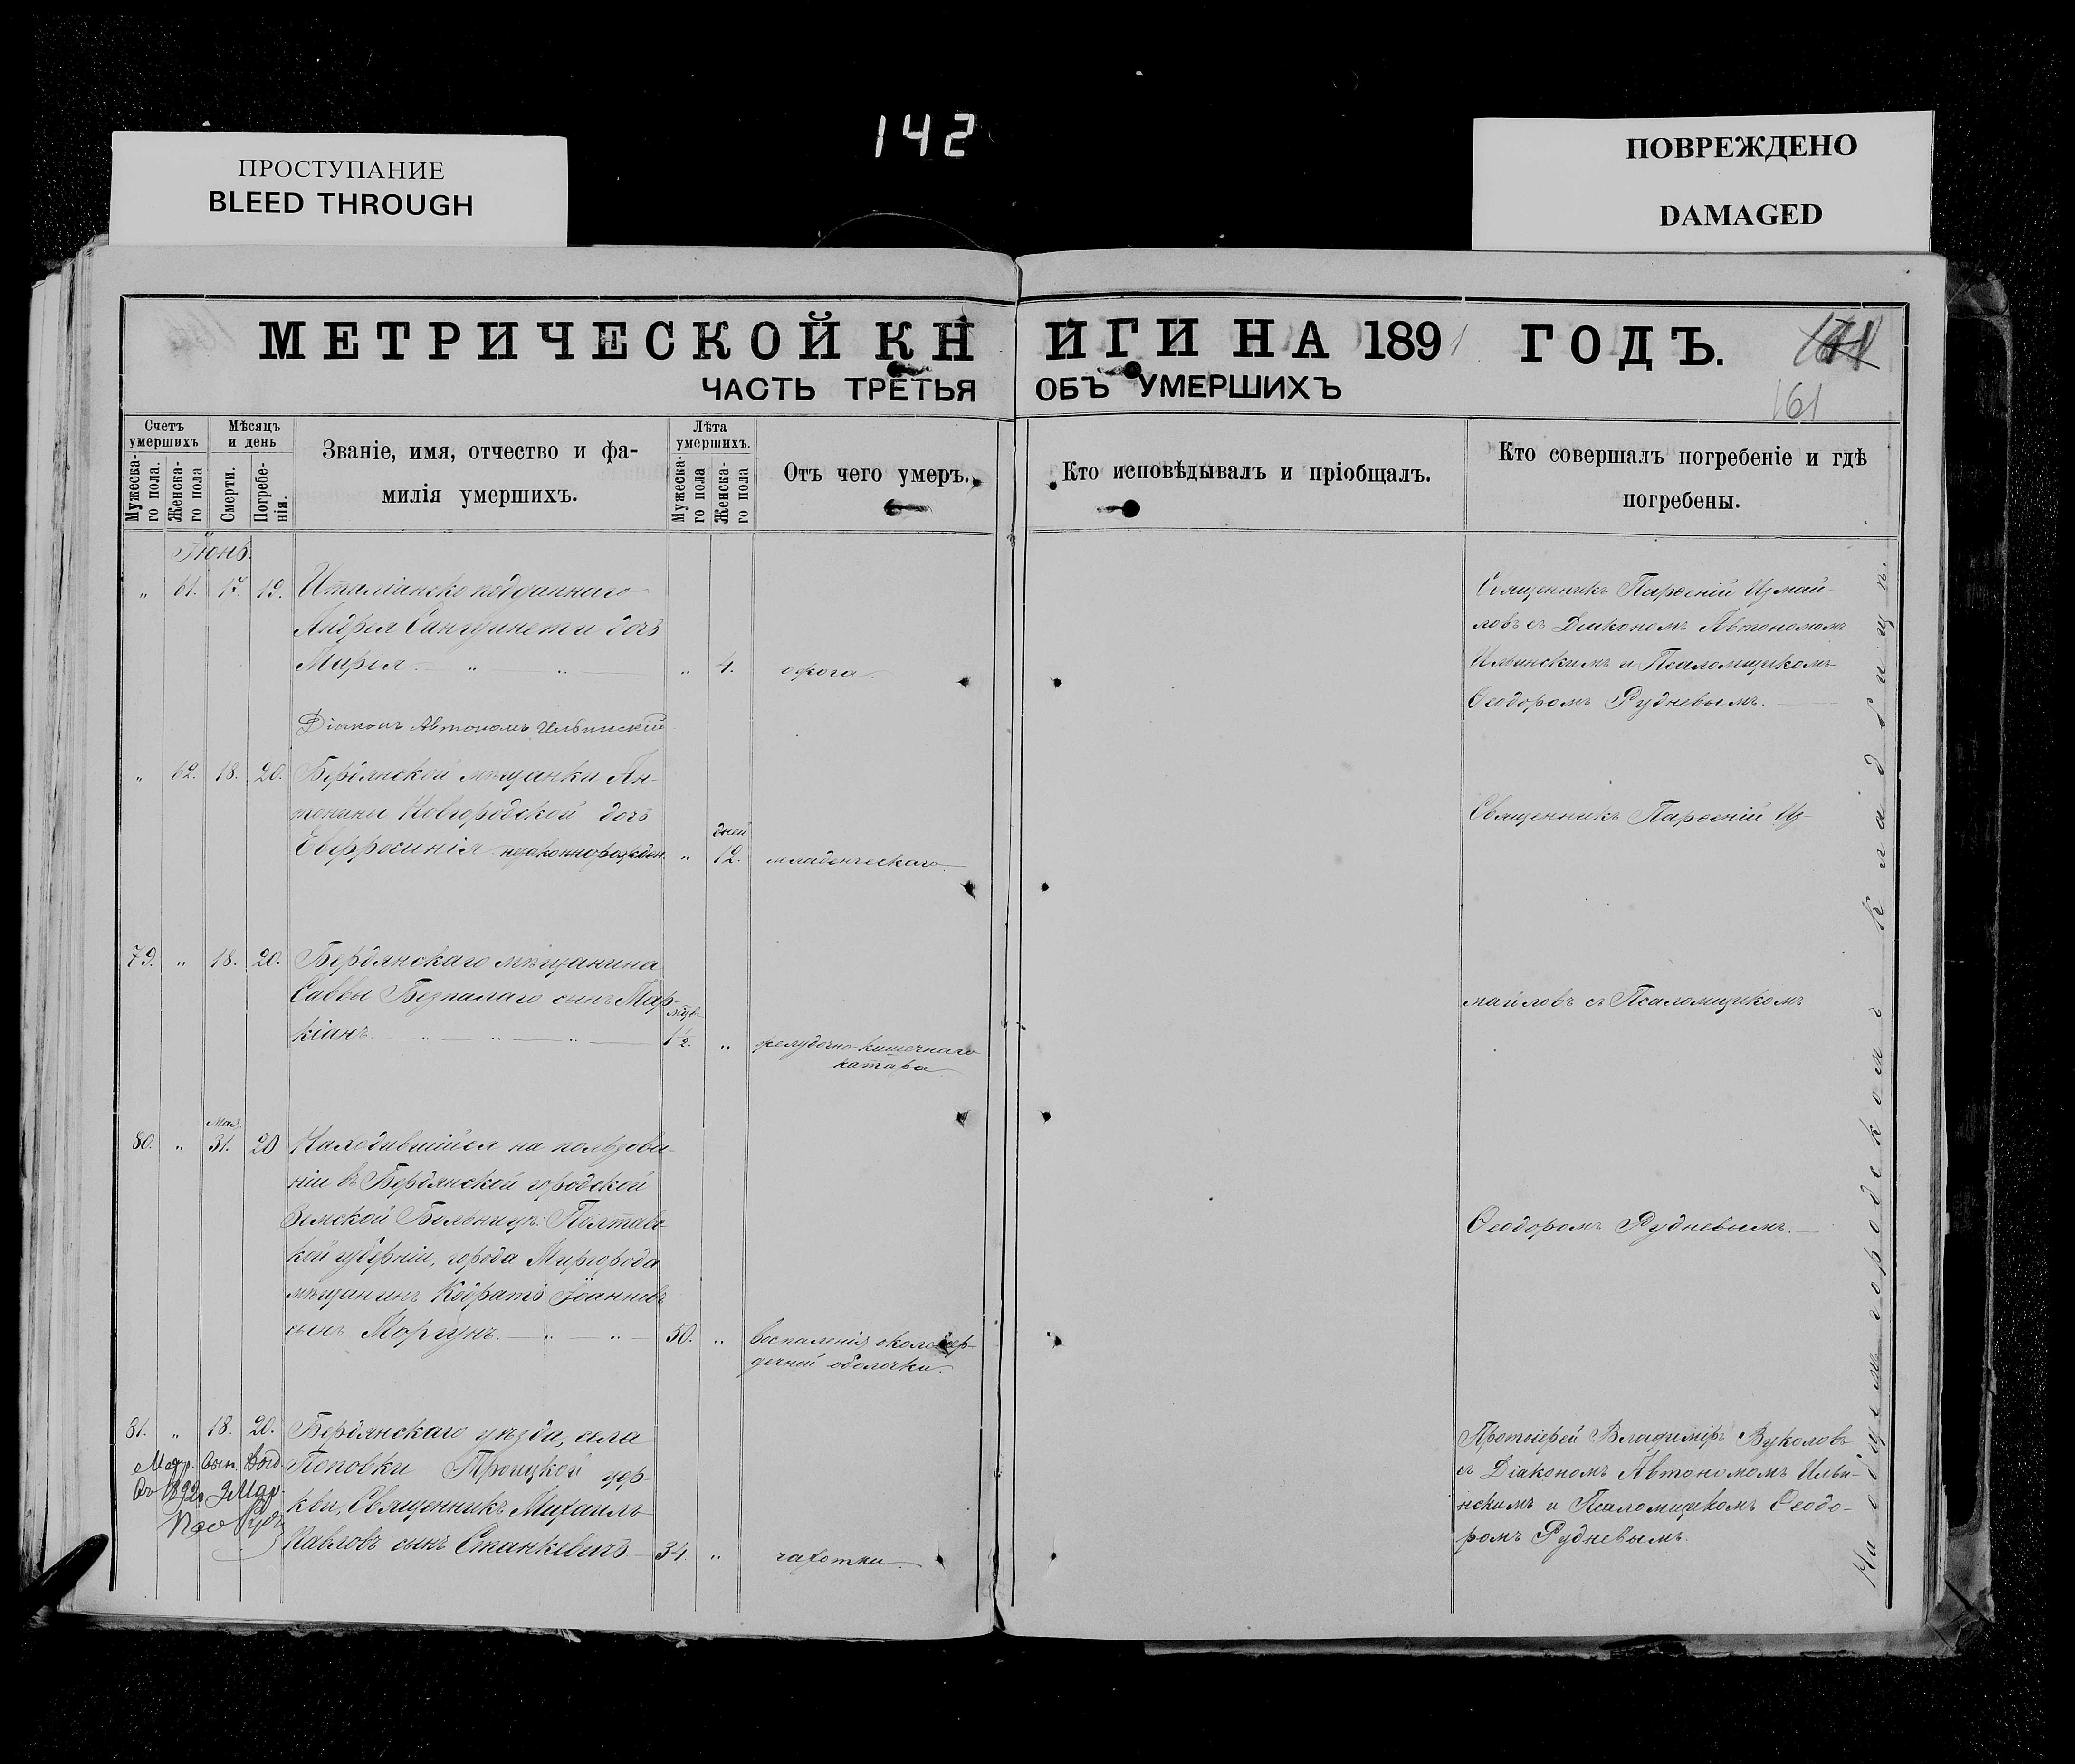 142
ПРОСТУПАНИЕ
BLEED THROUGH
ПОВРЕЖДЕНО
DAMAGED
МЕТРИЧЕСКОЙ КН
ИГИ НА 1891 ГОДЪ.
161
ЧАСТЬ ТРЕТЬЯ
ОБЪ УМЕРШИХЪ
Счетъ умершихъ
Мужеска-го пола.
Женска-го пола
Мѣсяцъ и день
Смерти.
Погребе-нія.
Званіе, имя, отчество и фа-
милія умершихъ.
Лѣта умершихъ.
Мужеска-го пола
Женска-го пола
Отъ чего умеръ.
Кто исповѣдывалъ и пріобщалъ.
Кто совершалъ погребеніе и гдѣ
погребены.
Іюнь.
" 61. 17. 19. Италіанско-подданнаго
Андрея дочь
Марія " 4. ожога.
Священникъ Парѳеній Измай-
ловъ съ Діакономъ Автономомъ
Ильинскимъ и Псаломщикомъ
Ѳеодоромъ Рудневымъ.
Діаконъ Автономъ Ильинскій
" 62. 18. 20. Бердянской мѣщанки Ан-
тонины Новгородской дочь
Евфросинія незаконнорожден. " дней 12. младенческаго
Священникъ Парѳеній Из-
79. " 18. 20. Бердянскаго мѣщанина
Саввы Безпалаго сынъ Мар-
кіанъ 1½ " желудочно-кишечнаго
катара
майловъ съ Псаломщикомъ
80. " Мая 31. 20 Находившійся на пользова-
ніи въ Бердянской городской
Земской Больницѣ Полтавс-
кой губерніи, города Миргорода
мѣщанинъ Кодратъ Іоанновъ
сынъ Моргунъ 50. " воспаленія околосер-
дечной оболочки.
Ѳеодоромъ Рудневымъ.
81. " 18. 20. Бердянскаго уѣзда, села
Поповки Троицкой цер-
кви, Священникъ Михаилъ
Павловъ сынъ Станкевичъ 34. " чахотки.
Метр. Выд.
1892
Протоіерей Владиміръ Вуколовъ
съ Діакономъ Автономомъ Ильи-
нскимъ и Псаломщикомъ Ѳеодо-
ромъ Рудневымъ.
На общемъ городскомъ кладбищѣ.